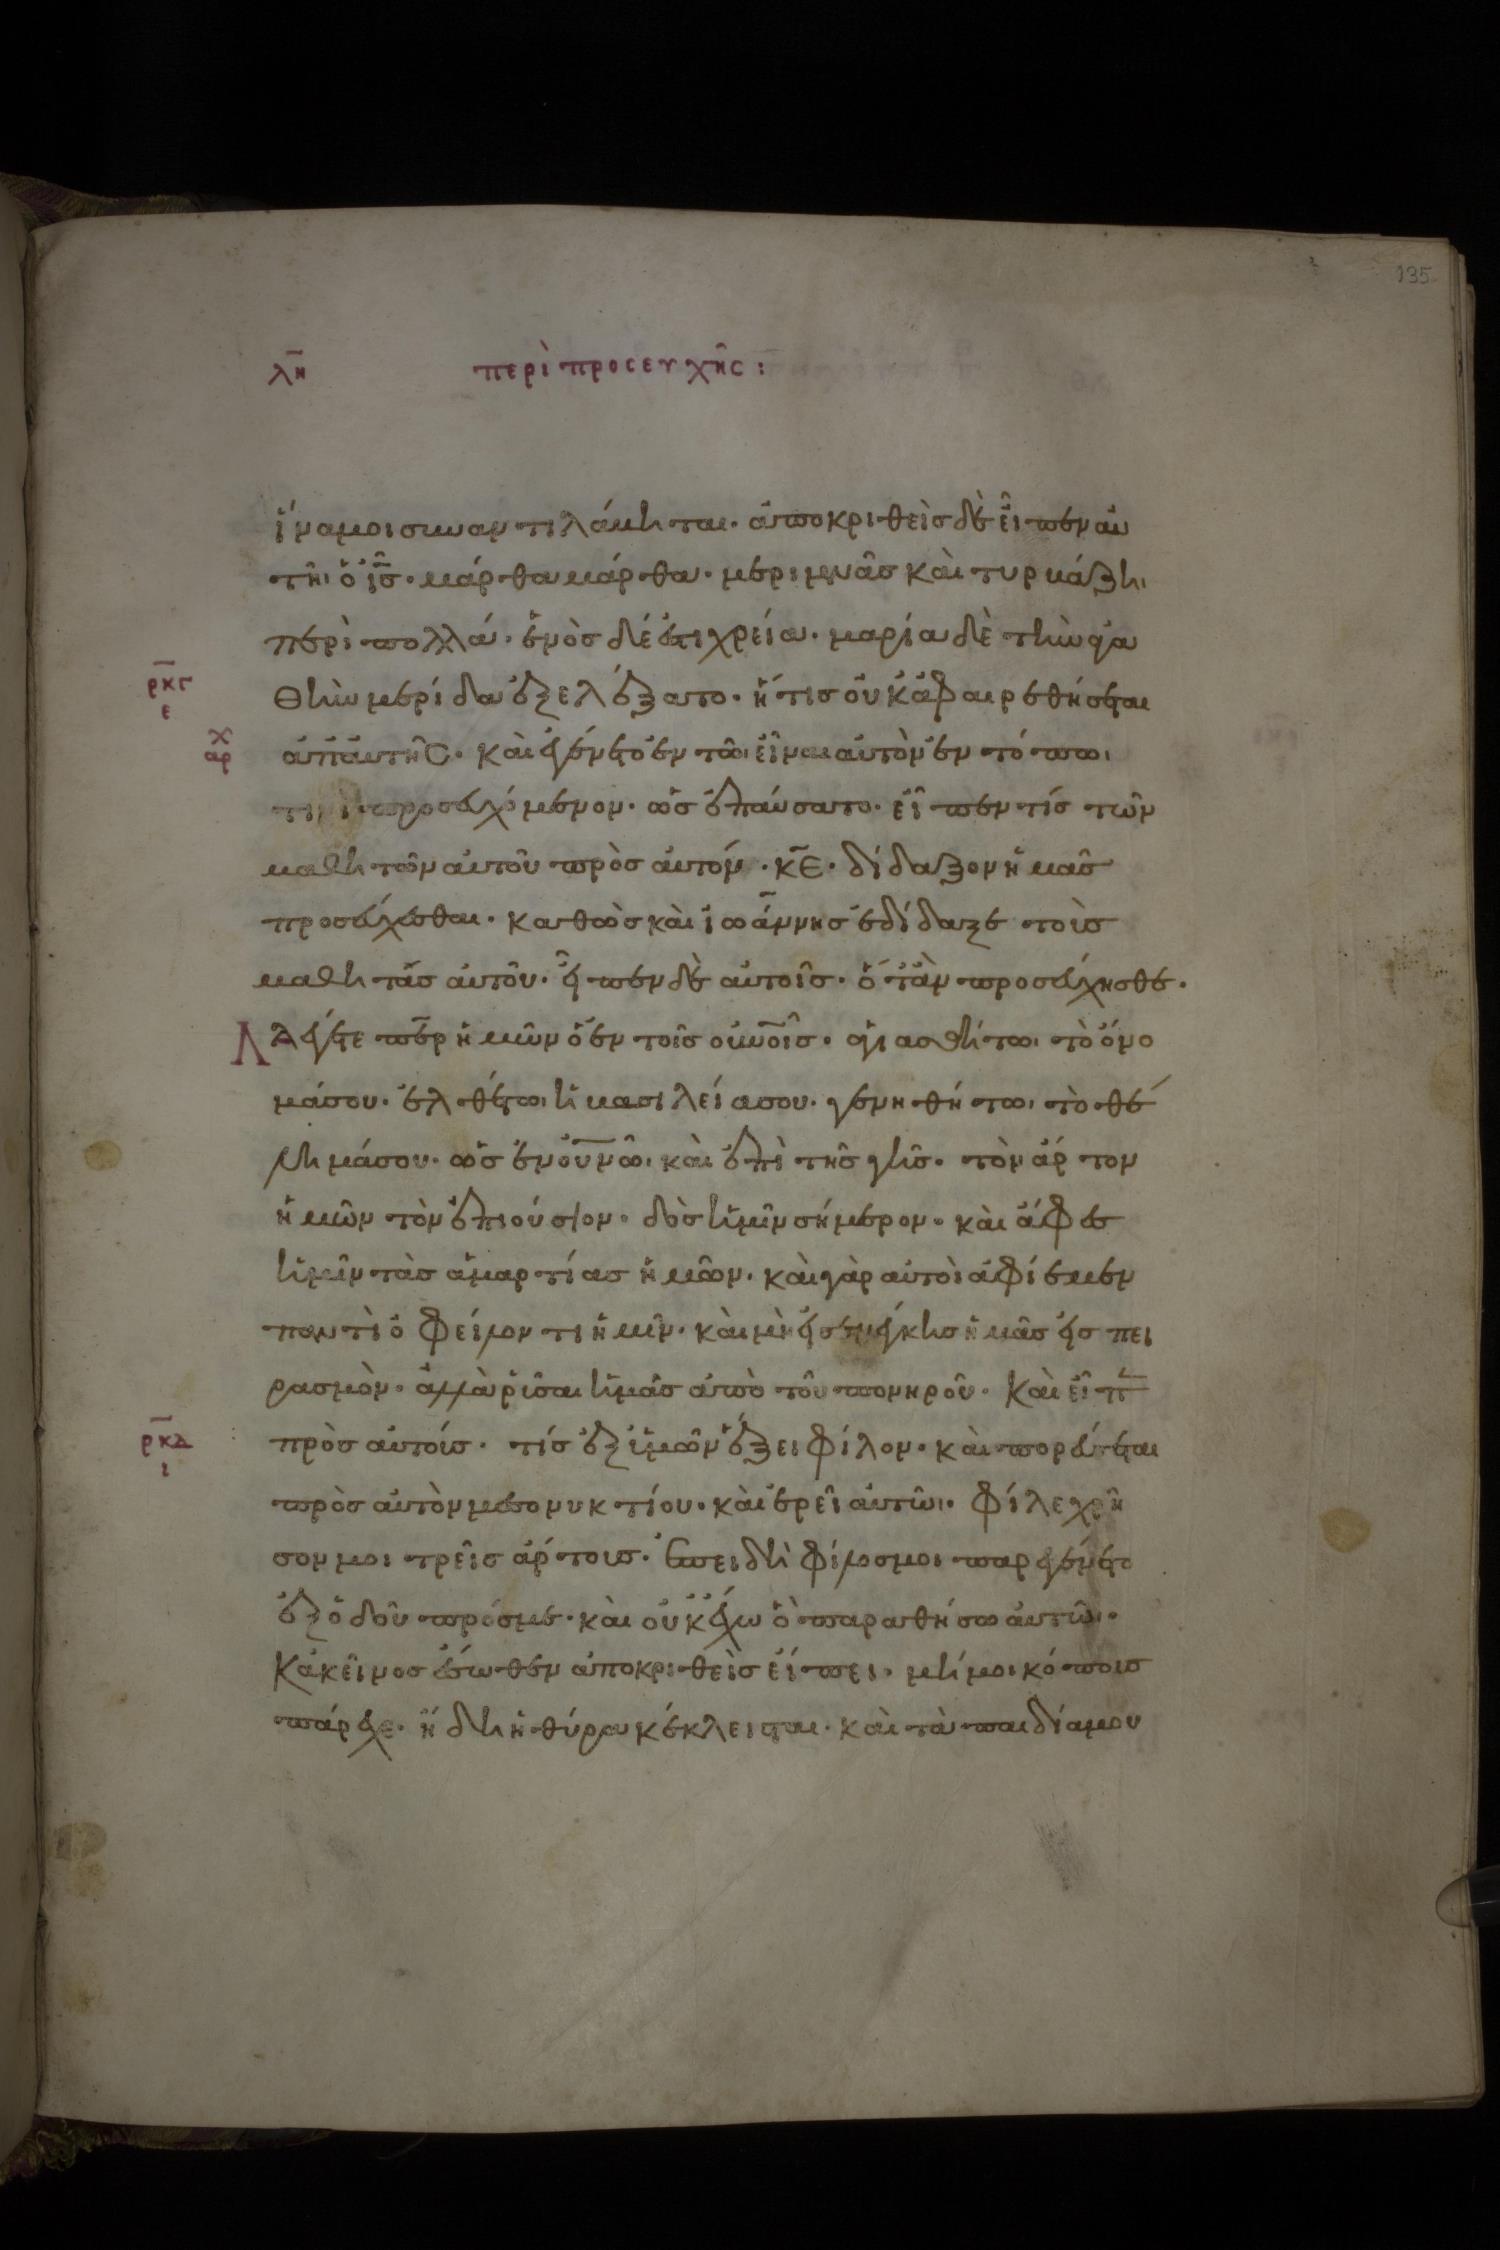 135
λη περὶ προσευχῆς:
ἵνα μοι συναντιλάβηται· ἀποκριθεὶς δὲ εἶπεν αὐ
τῆι ὁ ις· μάρθα μάρθα· μεριμνᾶς καὶ τυρβάζηι
περὶ πολλά· ἑνὸς δέ ἐστι χρεία· μαρία δὲ τὴν ἀγα
ρκγ
ε
θὴν μερίδα ἐξελέξατο· ἥτις οὐκ ἀφαιρεθήσεται
χ
αρ
ἀπ' αὐτῆς· καὶ ἐγένετο ἐν τῶι εἶναι αὐτὸν ἐν τόπωι
τινὶ προσευχόμενον· ὡς ἐπαύσατο· εἶπέν τίς τῶν
μαθητῶν αὐτοῦ πρὸς αὐτόν· κε· δίδαξον ἡμᾶς
προσεύχεσθαι· καθὼς καὶ ἰωάννης ἐδίδαξε τοὺς
μαθητὰς αὐτοῦ· εἶπεν δὲ αὐτοῖς· ὅταν προσεύχησθε·
λέγετε περ ἡμῶν ὁ ἐν τοῖς οὐνοῖς· ἁγιασθήτωι τὸ ὄνο
μά σου· ἐλθέτωι ἡ βασιλεία σου· γενηθήτωι τὸ θέ
λημά σου· ὡς ἐν οὐνῶι καὶ ἐπὶ τῆς γῆς· τὸν ἄρτον
ἡμῶν τὸν ἐπιούσιον· δὸς ἡμῖν σήμερον· καὶ ἄφες
ἡμῖν τὰς ἁμαρτίας ἡμῶν· καὶ γὰρ αὐτοὶ ἀφίεμεν
παντὶ ὀφείλοντι ἡμῖν· καὶ μὴ εἰσενέγκης ἡμᾶς εἰς πει
ρασμὸν· ἀλλὰ ῥῦσαι ἡμᾶς ἀπὸ τοῦ πονηροῦ· Καὶ εἶπ
ρκδ
ι
πρὸς αὐτούς· τίς ἐξ ὑμῶν ἕξει φίλον· καὶ πορεύεται
πρὸς αὐτὸν μεσονυκτίου· καὶ ἐρεῖ αὐτῶι· φίλε χρῆ
σον μοι τρεῖς ἄρτους· Ἐπειδὴ φίλος μοι παρεγένετο
ἐξ ὁδοῦ πρός με· καὶ οὐκ ἔχω ὃ παραθήσω αὐτῶι·
Κἀκεῖνος ἔσωθεν ἀποκριθεὶς εἴπει· μή μοι κόπους
πάρεχε· ἤδη ἡ θύρα κέκλεισται· καὶ τὰ παιδία μου